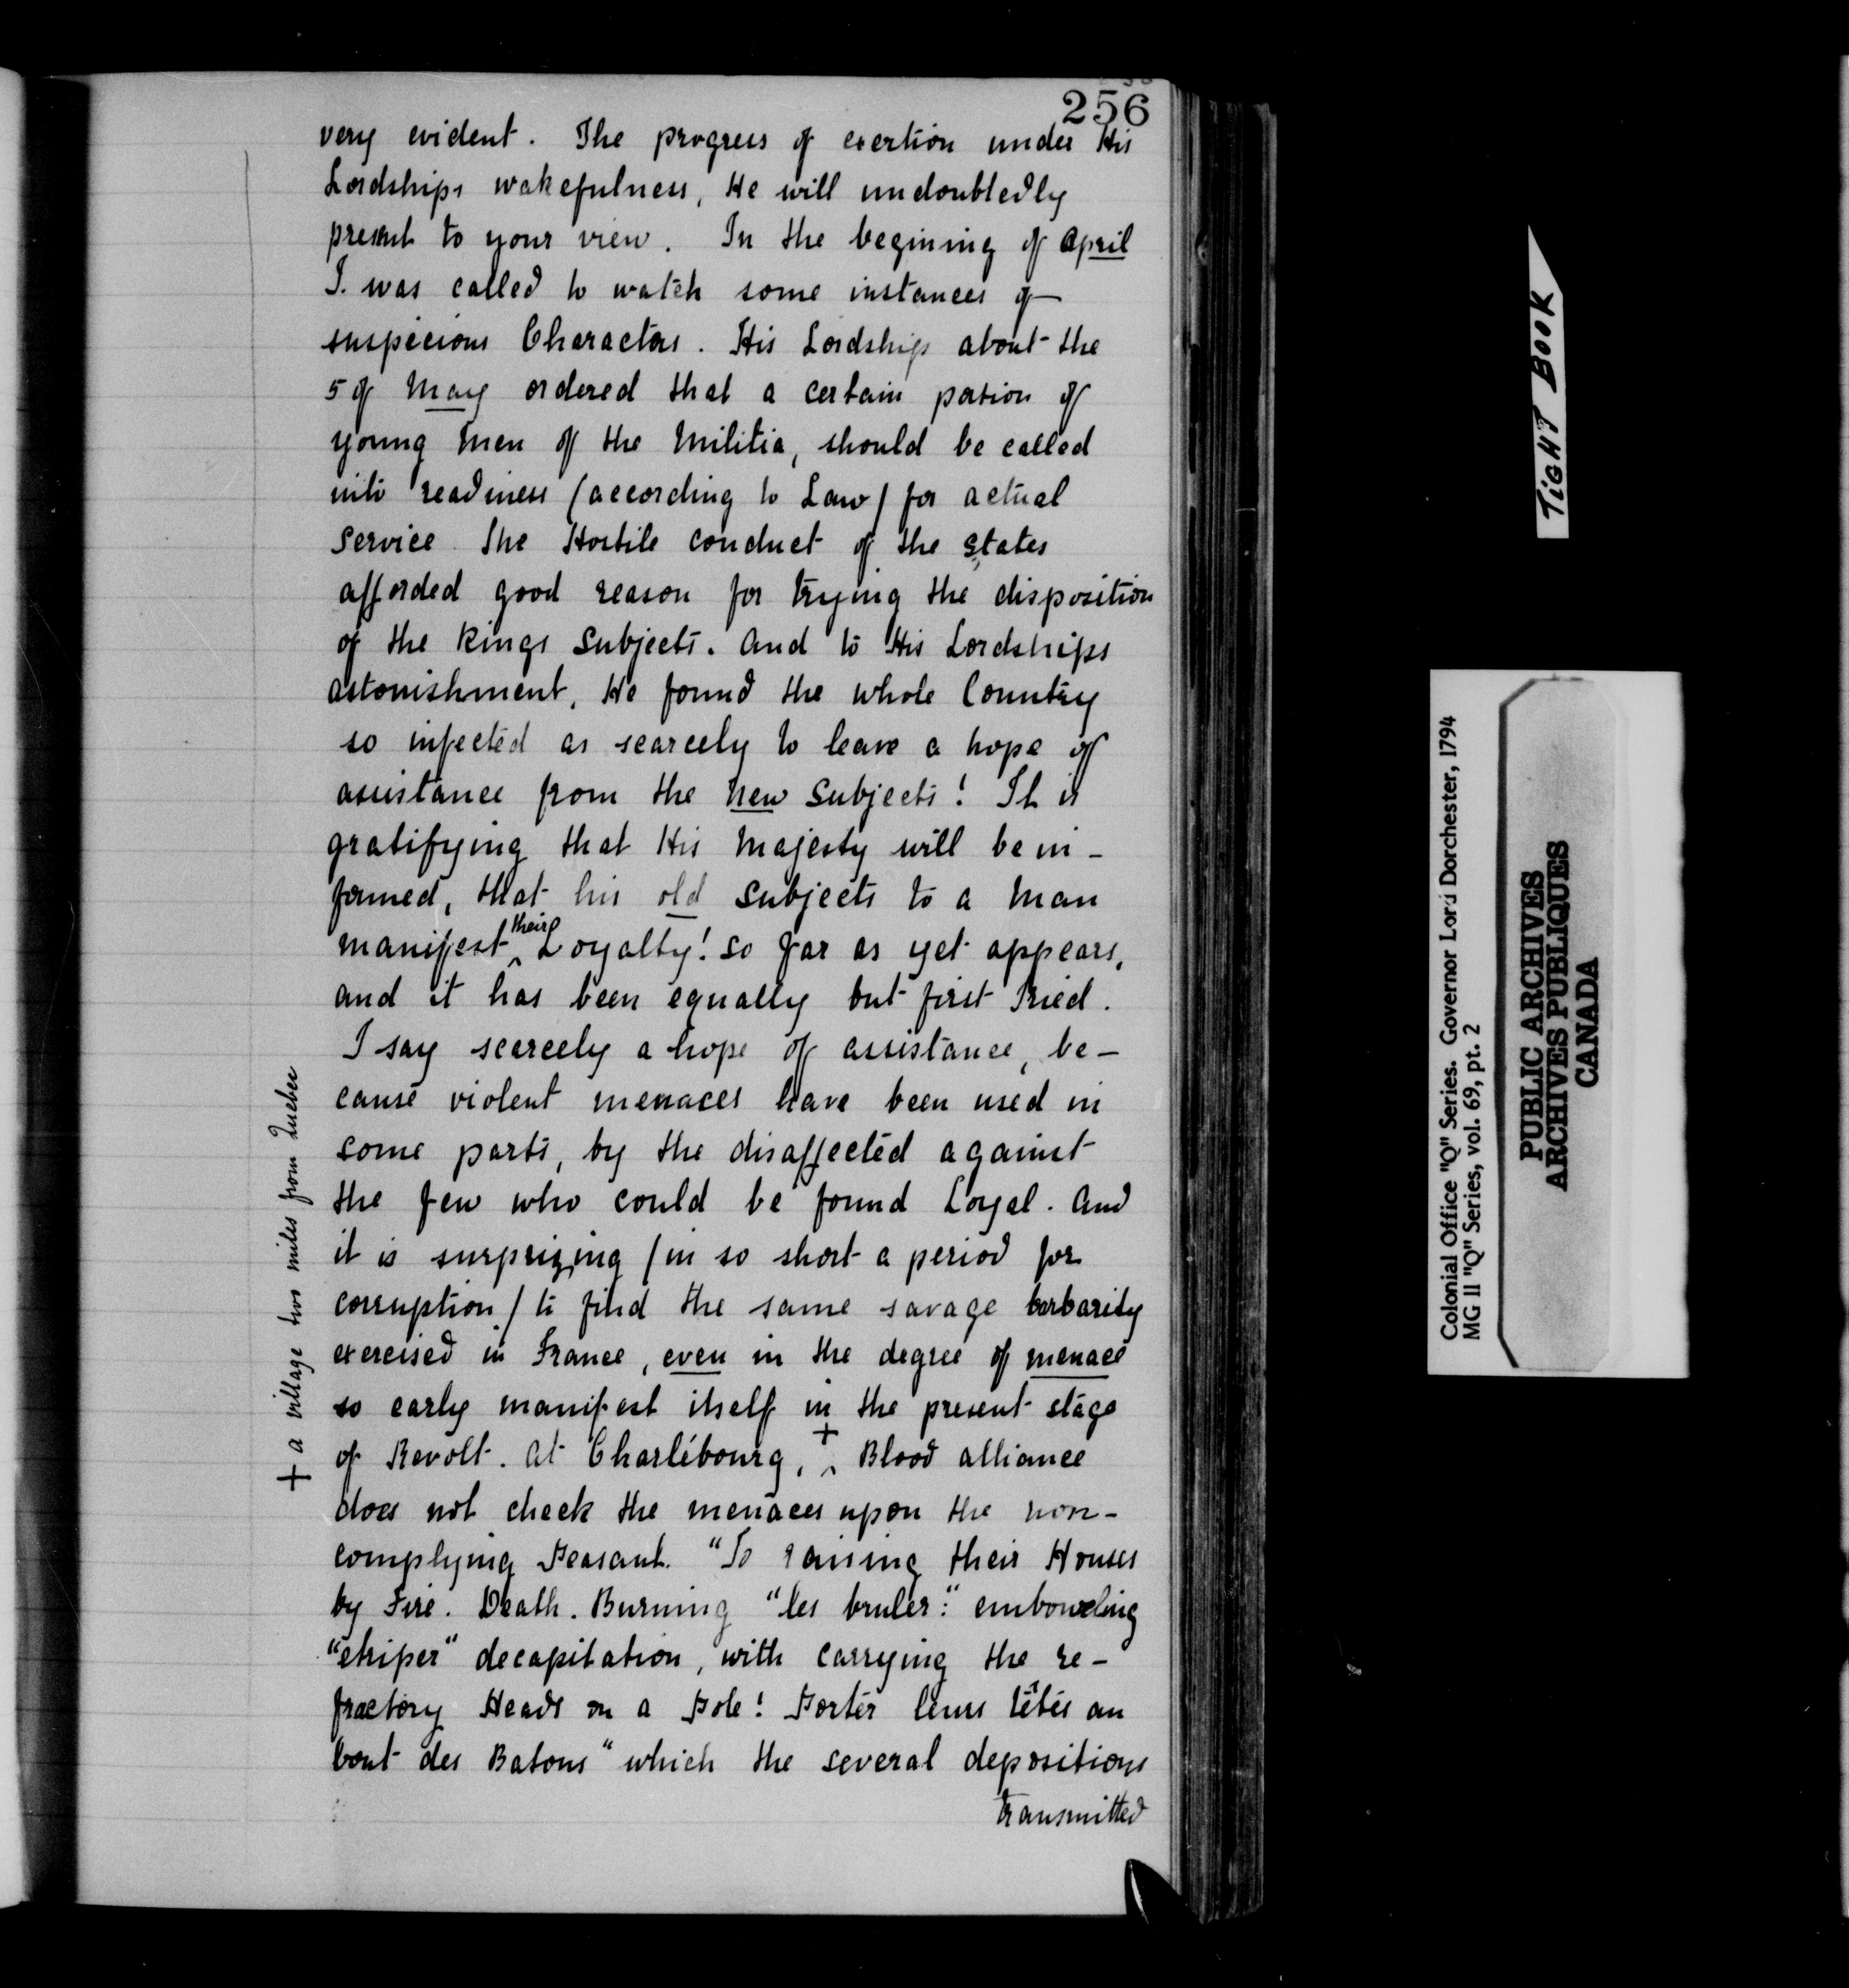 256
very evident. The progress of exertion under His
Lordships wakefulness, He will undoubtedly
present to your view. In the begining of April
I. was called to watch some instances of
suspecious Characters. His Lordship about the
5 of May ordered that a certain portion of
young Men of the Militia, should be called
into readiness (according to Law) for actual
Service. The Hostile conduct of the States
afforded good reason for trying the disposition
of the Kings Subjects. And to His Lordships
astonishment, He found the whole Country
so infected as scarcely to leave a hope of
assistance from the New Subjects! It is
gratifying that His Majesty will be in-
formed, that his old Subjects to a Man
manifest their Loyalty! so far as yet appears,
and it has been equally but first Tried.
I say scarcely a hope of assistance, be-
cause violent menaces have been used in
some parts, by the disaffected against
the few who could be found Loyal. And
it is surprizing (in so short a period for
corruption) to find the same savage barbarity
exercised in France, even in the degree of menace
so early manifest itself in the present stage
of Revolt. At Charlébourg, + Blood alliance
does not check the menaces upon the non-
complying Peasant. "To raising their Houses
by Fire. Death. Burning "les bruler:" emboweling
"etriper" decapitation, with carrying the re-
fractory Heads on a Pole! Porter leurs têtes au
bout des Batons" which the several depositions
transmitted
+ a village two miles from Quebec
TIGHT BOOK
Colonial Office "Q" Series. Governor Lord Dorchester, 1794
MG 11 "Q" Series, vol. 69, pt. 2
PUBLIC ARCHIVES
ARCHIVES PUBLIQUES
CANADA